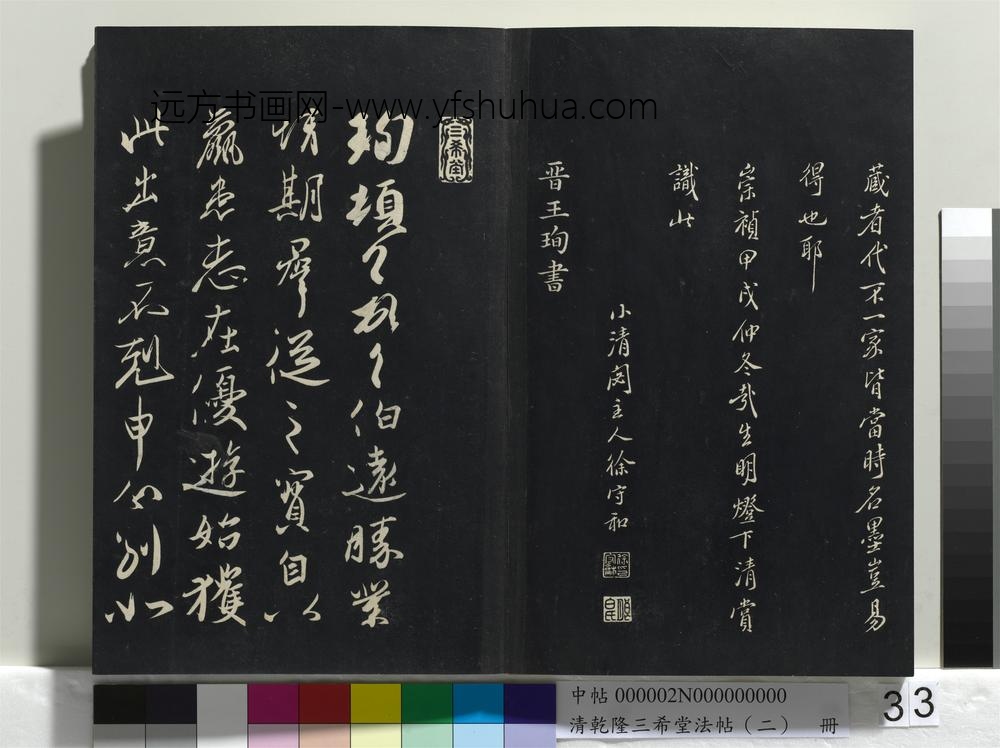 远方书画网-www.yfshuhua.com
藏者代不一家皆當時名墨豈易
得也耶
崇禎甲戌仲冬哉生明燈下清賞
識此
小清閟主人徐守和
晋王珣書
三希堂
珣頓首頓首伯遠勝業
情期群從之寶自以
羸患志在優遊始獲
此出意不剋申分別如
中帖 000002N000000000
清乾隆三希堂法帖（二） 冊
33